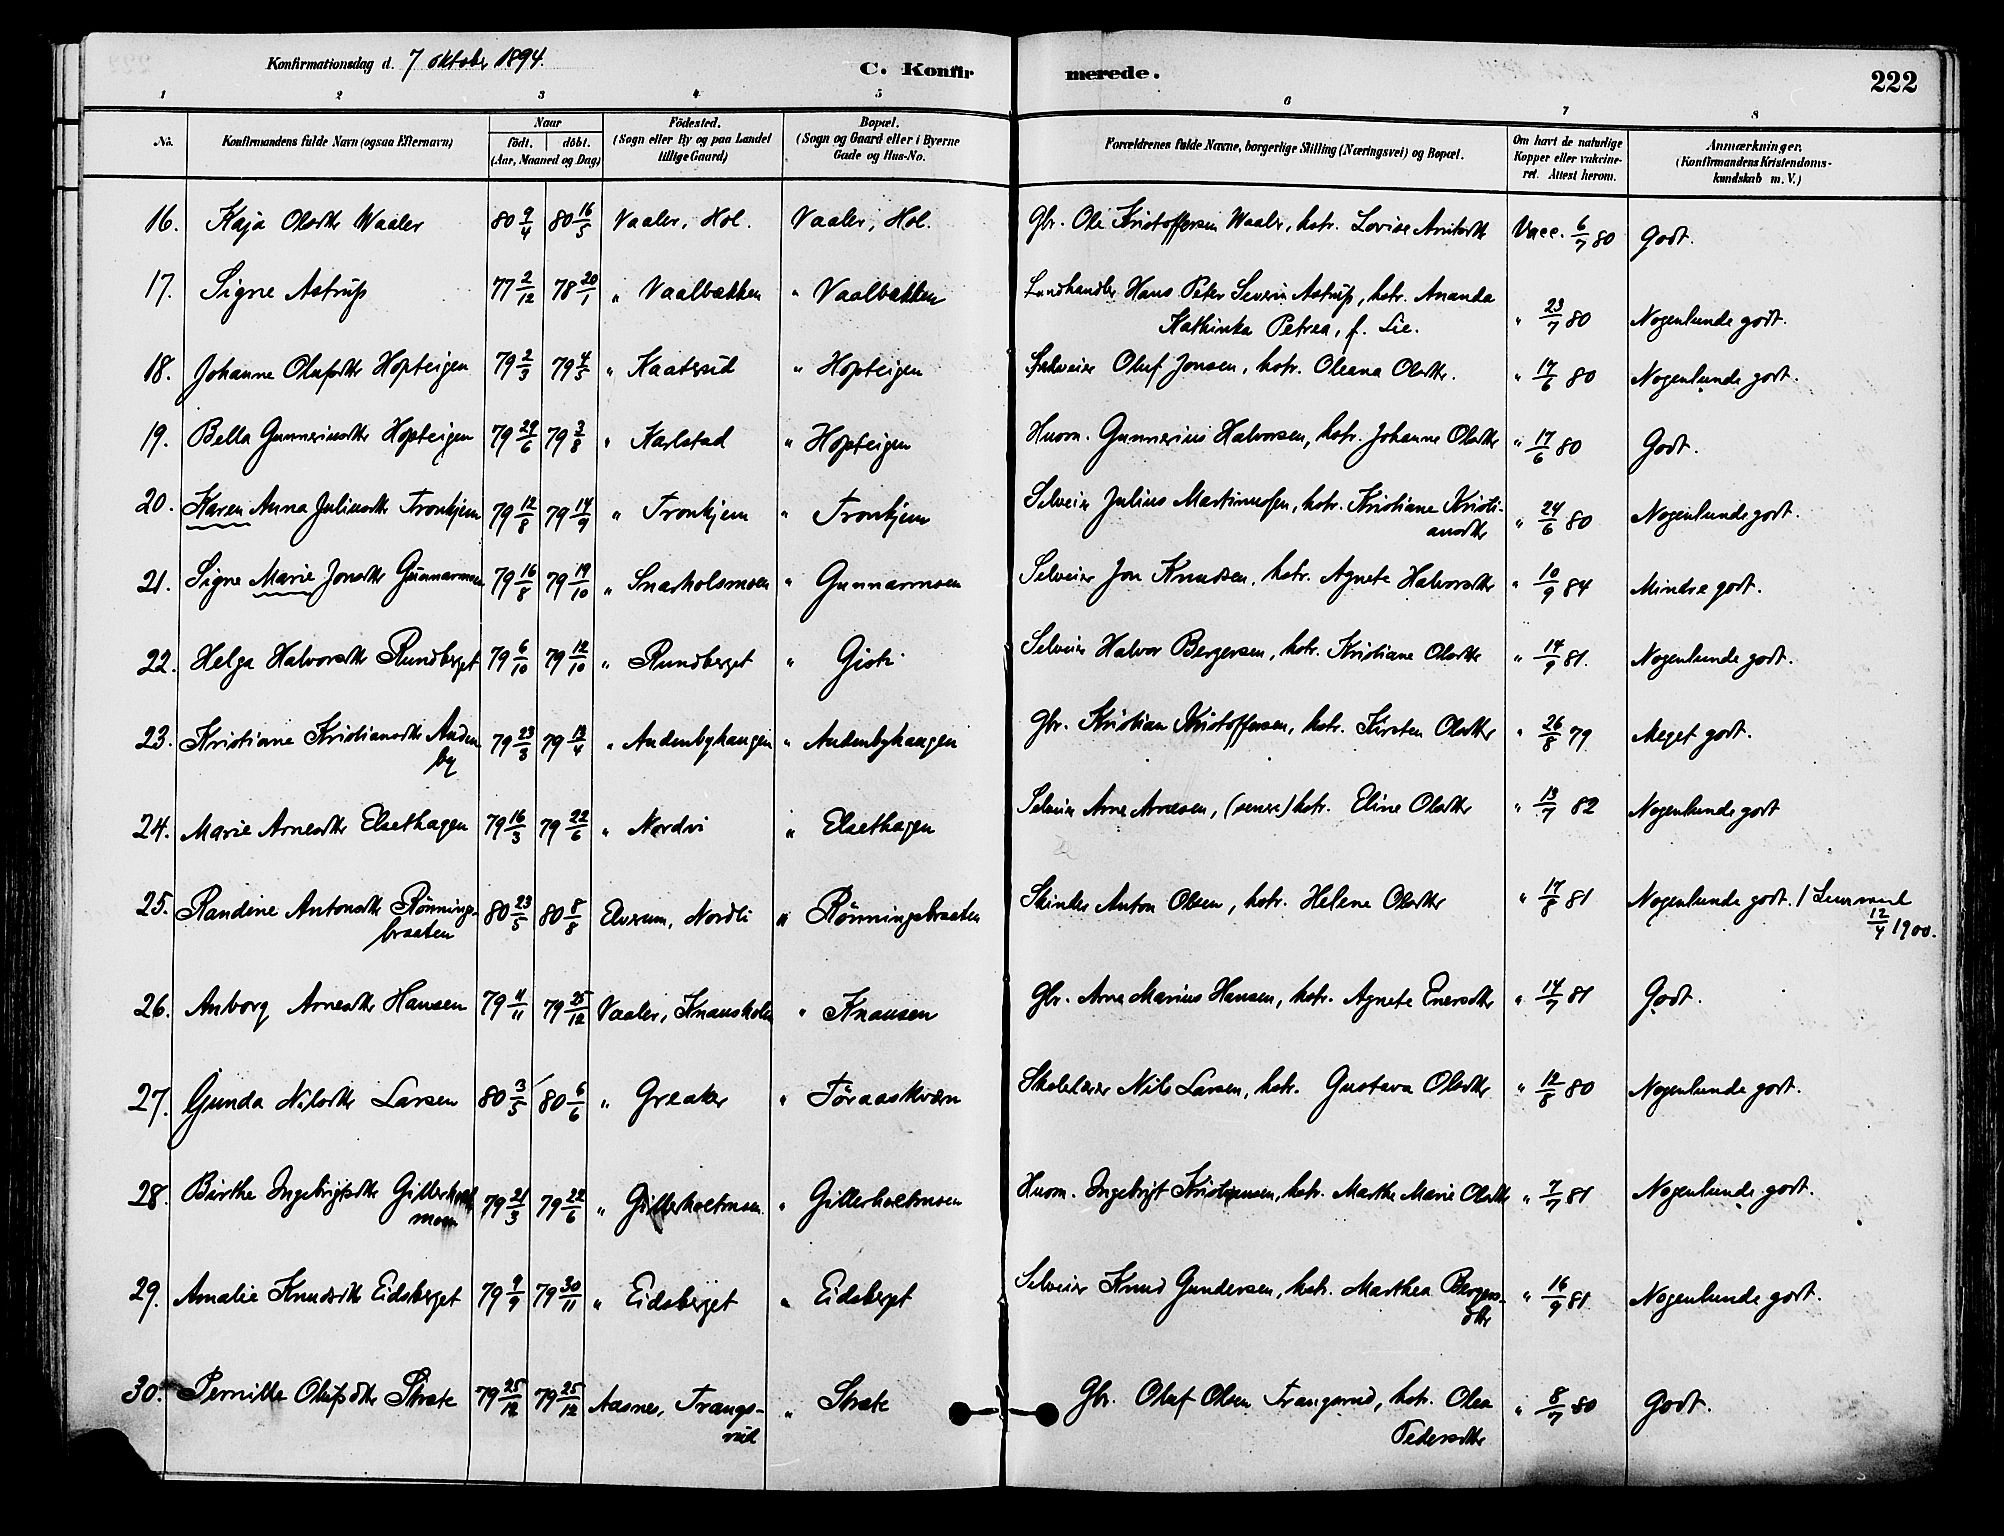 Konfirmationsdag d. 7 oktober 1894.
C. Konfirmerede.
222
1 2 3 4 5 6 7 8
No. Konfirmandens fulde Navn (ogsaa Efternavn) Naar født. døbt. (Aar, Maaned og Dag) Fødested. (Sogn eller By og paa Landet tillige Gaard) Bopæl. (Sogn og Gaard eller i Byerne Gade og Hus-No. Forældrenes fulde Navne, borgerlige Stilling (Næringsvei) og Bopæl. Om havt de naturlige Kopper eller vakcineret. Attest herom. Anmærkninger. (Konfirmandens Kristendomskundskab m. V.)
16. Kaja Olsdtr Waaler 80 9/4 80 16/5 Vaaler, Hol. Vaaler, Hol. Gbr. Ole Kristoffersen Waaler, hstr. Lovise Arntsdtr Vacc. 6/7 80 Godt.
17. Signe Astrup 77 2/12 78 20/1 " Vaalbækken " Vaalbækken Landhandler Hans Peter Severin Astrup, hstr. Ananda
Kathinka Petrea, f. Lie. " 23/7 80 Nogenlunde godt.
18. Johanne Olufsdtr Hopteigen 79 2/3 79 4/5 " Kaatsrud " Hopteigen Selveier Oluf Jonsen, hstr. Oleana Olsdtr. " 17/6 80 Nogenlunde godt.
19. Bella Gunneriusdtr Hopteigen 79 29/6 79 3/8 " Karlstad " Hopteigen Husm. Gunnerius Halvorsen, hstr. Johanne Olsdtr " 17/6 80 Godt.
20. Karen Anna Juliusdtr Tronkjern 79 12/8 79 14/9 " Tronkjern " Tronkjern Selveier Julius Martinusen, hstr. Kristiane Kristi-
ansdtr " 24/6 80 Nogenlunde godt.
21. Signe Marie Jonsdtr Gunnarmoen 79 16/8 79 19/10 " Snarholsmoen " Gunnarmoen Selveier Jon Knudsen, hstr. Agnete Halvorsdtr " 10/9 84 Mindre godt.
22. Helga Halvorsdtr Rundberget 79 6/10 79 12/10 " Rundberget " Selveier Halvor Bergersen, hstr. Kristiane Olsdtr " 14/9 81. Nogenlunde godt.
23. Kristiane Kristiansdtr Anden-
by 79 23/3 79 /4 " Andenbyhaugen " Andenbyhaugen Gbr. Kristian Kristoffersen, hstr. Kirsten Olsdtr " 26/8 79 Meget godt.
24. Marie Arnesdtr Elsethagen 79 16/3 79 22/6 " Nordvi " Elsethagen Selveier Arne Arnesen, (senere) hstr. Eline Olsdtr " 13/7 82 Nogenlunde godt
25. Randine Antonsdtr Rønnings-
braaten 80 23/5 80 8/8 Elverum, Nordli " Rønningsbraaten Skinker Anton Olsen, hstr. Helene Olsdtr " 17/8 81 Nogenlunde godt.
12/4 1900.
26. Anborg Arnesdtr Hansen 79 4/11 79 25/12 Vaaler, Knausholen " Knausen Gbr. Arne Marius Hansen, hstr. Agnete Enersdtr " 14/7 81 Godt.
27. Gunda Nilsdtr Larsen 80 3/5 80 6/6 " Greaker " Føraaskværn Skolelærer Nils Larsen, hstr. Gustava Olsdtr " 12/8 80 Nogenlunde godt.
28. Birthe Ingebrigtsdtr Gillerholt
moen 79 21/3 79 22/6 " Gillerholtmoen. " Gillerholtmoen Husm. Ingebrigt Kristiansen, hstr. Marthe Marie Olsdtr " 7/7 81 Nogenlunde godt.
29. Amalie Knudsdtr Eidsberget 79 9/9 79 30/11 " Eidsberget " Eidsberget Selveier Knud Gundersen, hstr. Marthea Bergers-
dtr " 16/9 81 Nogenlunde godt.
30. Pernille Olufsdtr Strate 79 25/12 79 25/12 Aasnes, Trangs-
rud " Strate Gbr. Oluf Olsen Trangsrud, hstr. Olea
Pedersdtr " 8/7 80 Godt.